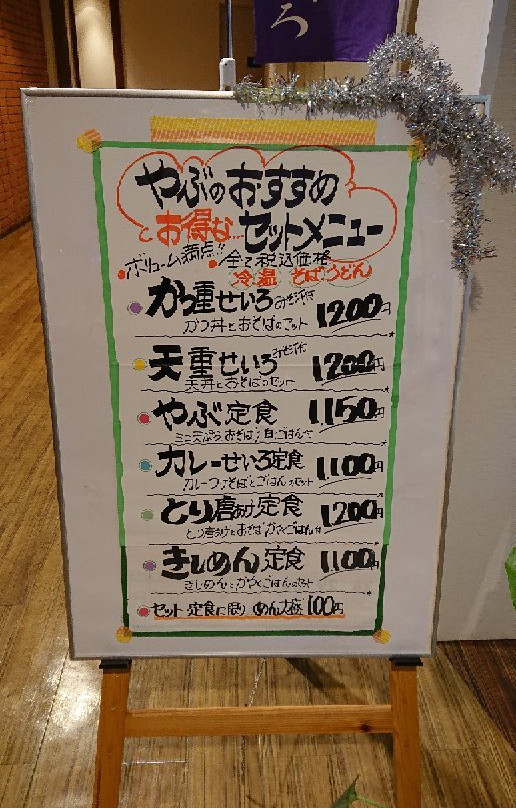 ろ
やぶのおすすめ
とお得な…セットメニュー
・ボリューム満点!! ・全て税込価格
冷温 そば・うどん
かつ重せいろ みそ汁付 1200円
カツ丼とおそばのセット
天重せいろ みそ汁付 1200円
天丼とおそばのセット
やぶ定食 1,150円
カレーせいろ定食 1,100円
カレーつけそばとごはんのセット
とり唐あげ定食 1200円
きしめん定食 1,100円
きしめんとかやくごはんのセット
セット・定食に限り めん大盛 100円